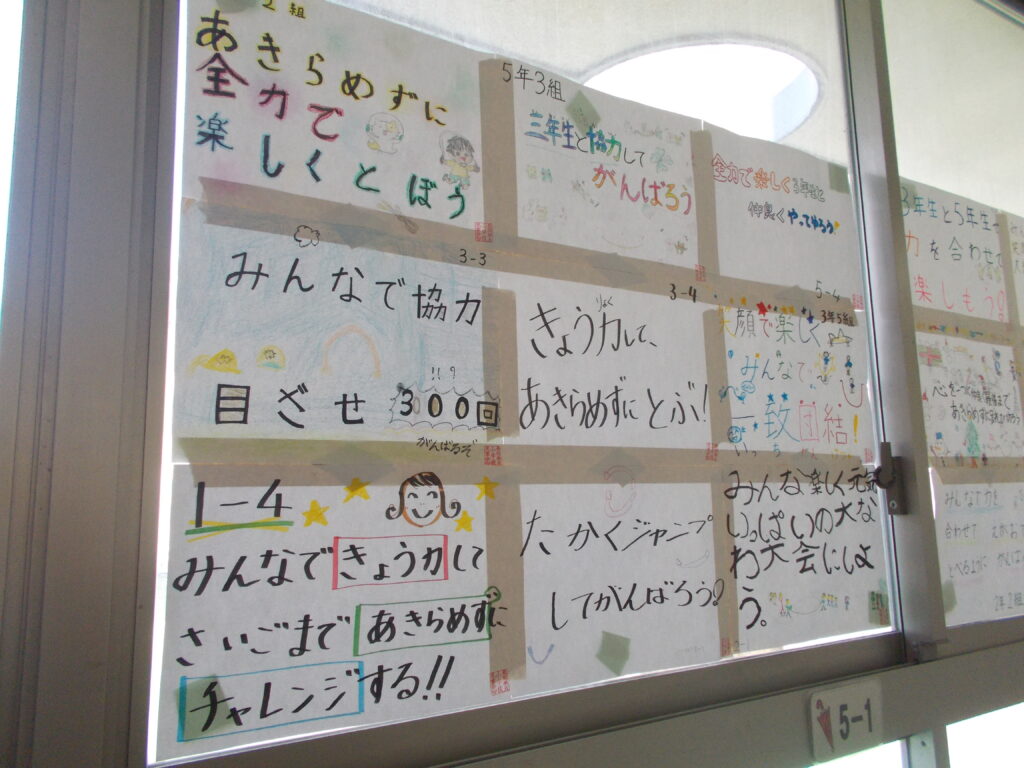 2組
あきらめずに
全力で
楽しくとぼう
5年3組
三年生と協力して
がんばろう
全力で楽しく3年生と
仲良くやってやろう!
3-3
みんなで協力
目ざせ300回
がんばるぞ
3-4
りょく
きょう力して、
あきらめずにとぶ!
5-4
3年5組
笑顔で楽しく
みんなで
一致団結!
いっち
1-4
みんなできょう力して
さいごまであきらめずに
チャレンジする!!
たかくジャンプ
してがんばろう!
みんな楽しく元気
いっぱいの大な
わ大会にしよ
う。
2-1
3年生と5年生
力を合わせて
楽しもう!
みんな力を
合わせて
2年2組
5-1